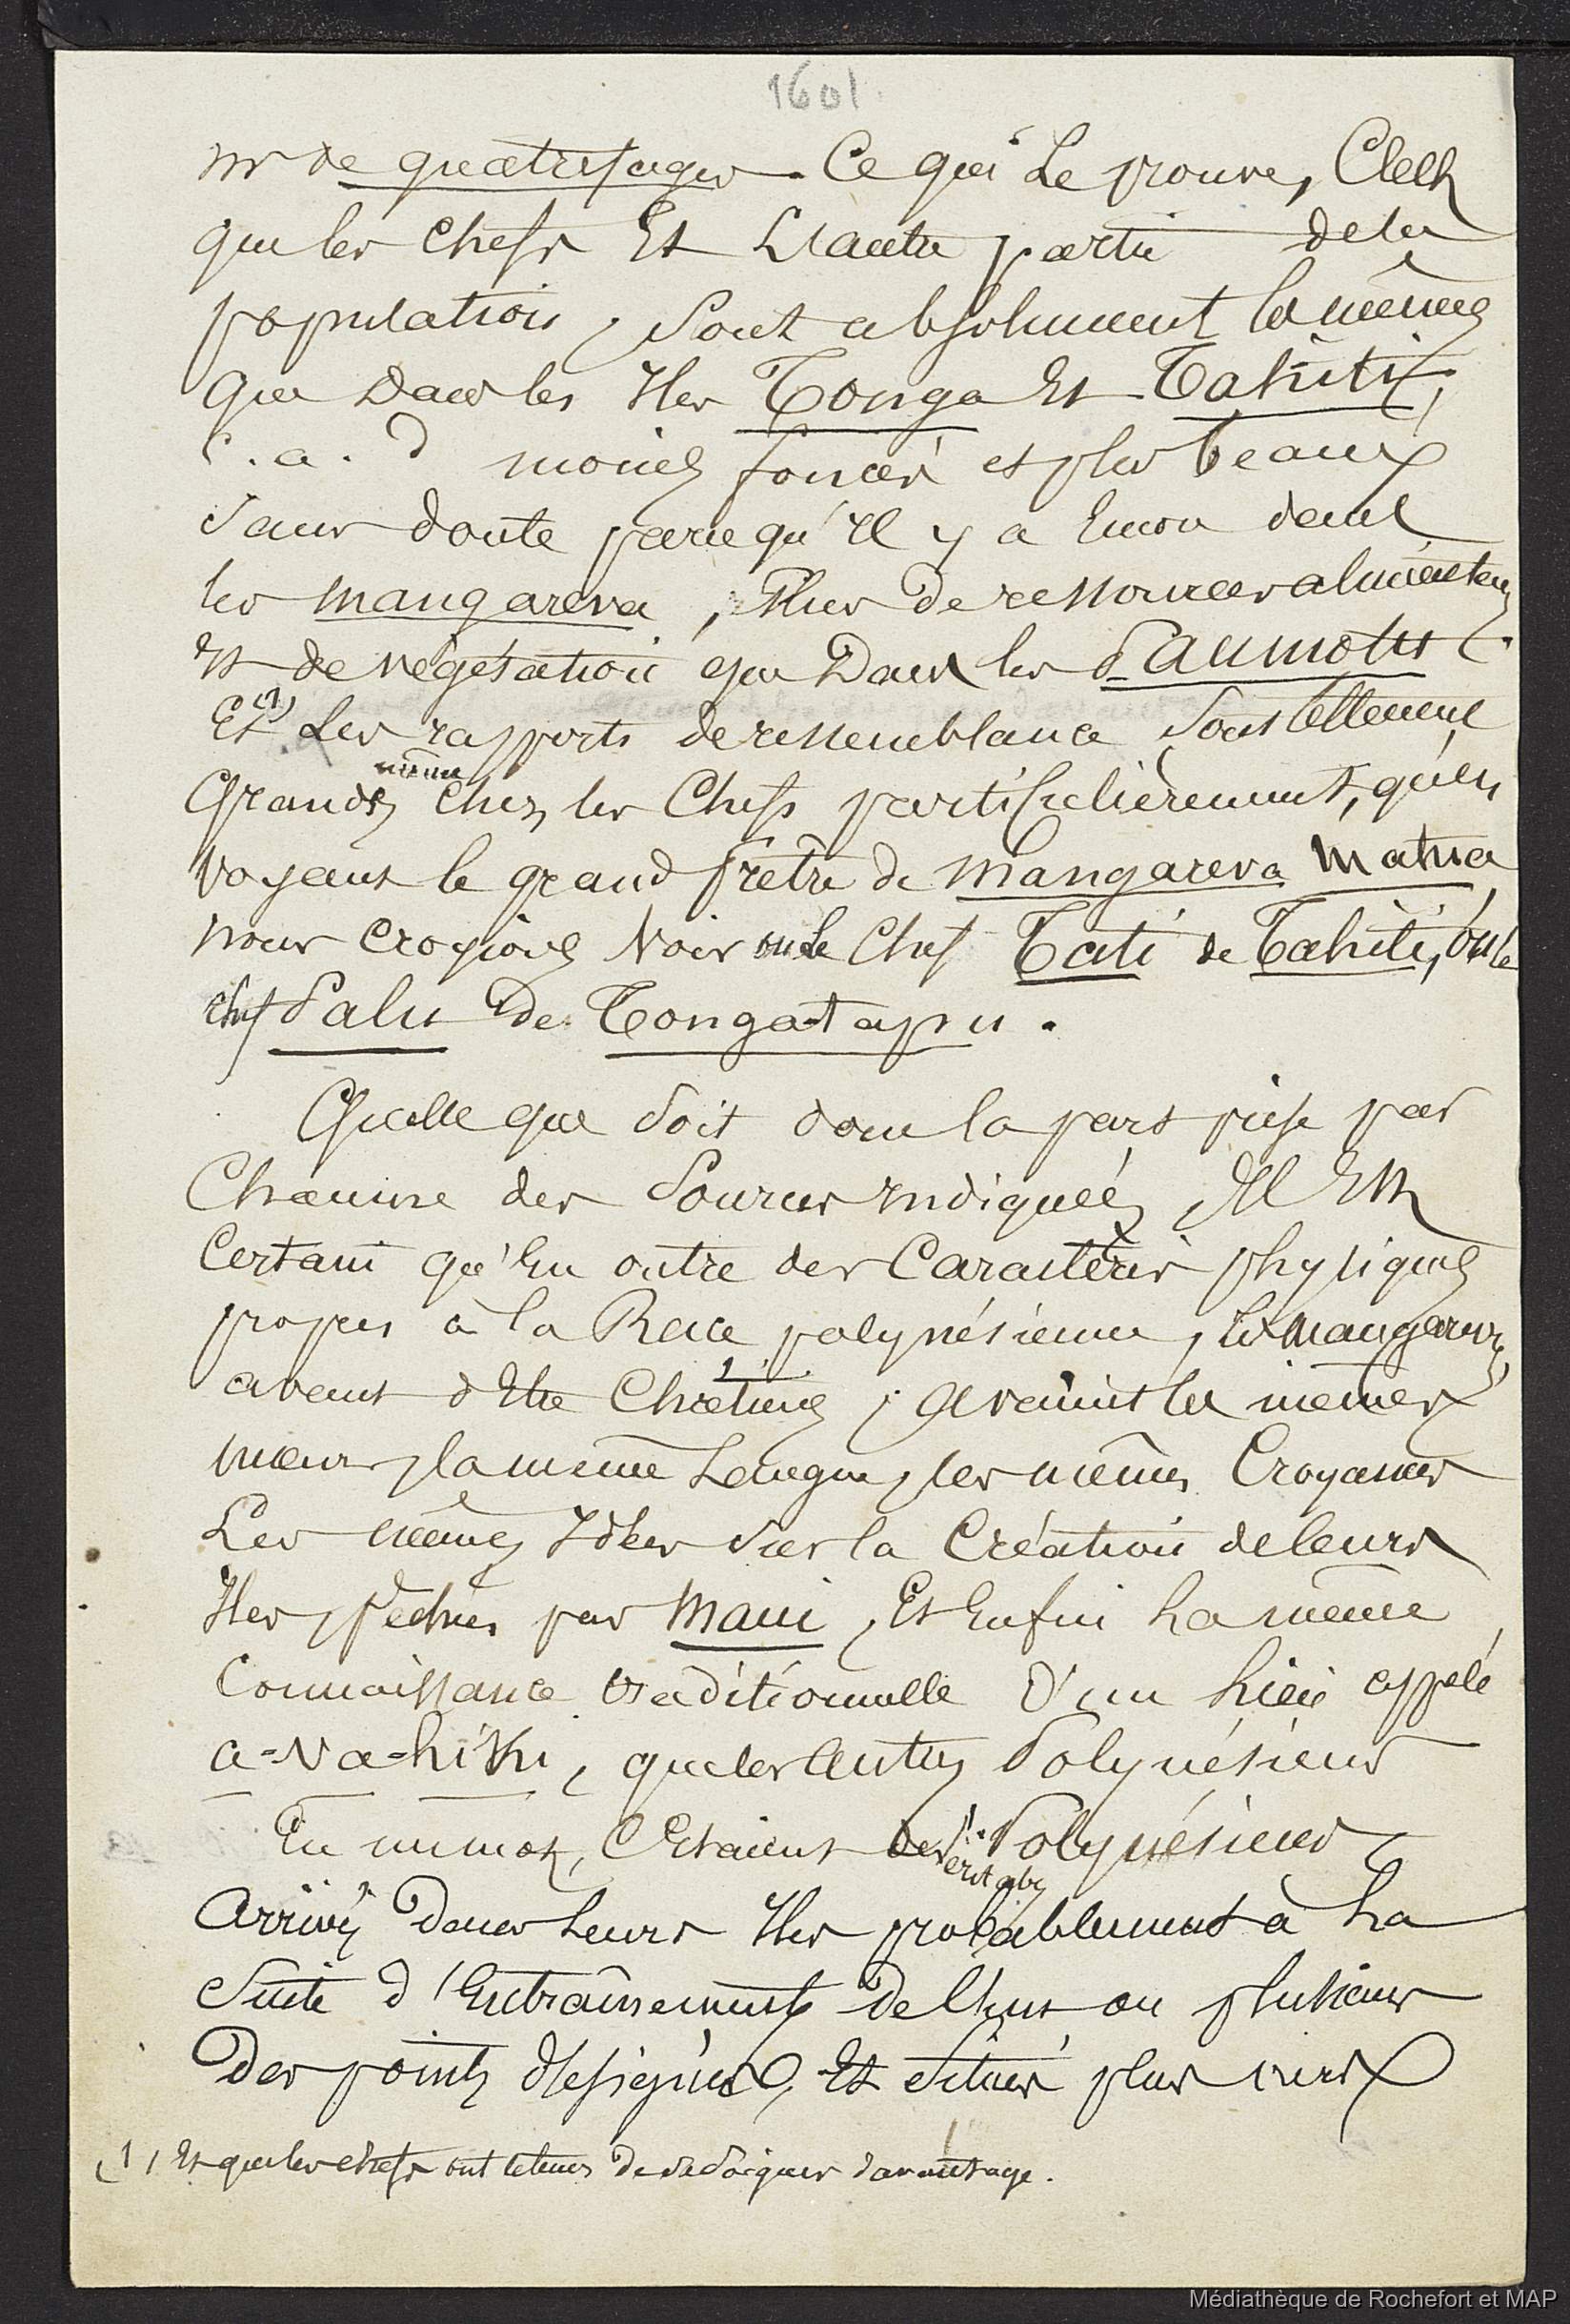 1601
M. de Quatrefages. Ce qui Le prouve, C'est
que les chefs Et L'autre partie de la
population, Sont absolument les mêmes
que Dans les Iles Tonga Et Tahiti,
c. a. d moins foncés et plus beaux
Sans doute parcequ'Il y a Encore dans
les Mangareva, Plus de ressources alimentaires
Et de végétation que Dans les Paumotu.
Et (1) Les rapports de ressemblance Sont tellement
Grands même chez les Chefs particulièrement, qu'en
voyant le grand Prêtre de Mangareva Matua,
nous croyions Voir ou Le Chef Tati de Tahiti, ou le
chef Palu de Tonga-tapu.
Quelle que Soit donc la part prise par
Chacune des Sources Indiquées, Il Est
Certain qu'En outre des Caractères physiques
propres à la Race polynésienne, les Mangaréviens,
avant d'Etre Chrétiens, avaient les mêmes
mœurs, la même Langue, les mêmes Croyances
Les mêmes Idées Sur la Création de leurs
Iles, Pêchées par Maui, Et Enfin La même
Connaissance traditionnelle d'un lieu appelé
a-Va-hiki, que les Autres Polynésiens
En un mot, C'Etaient des véritables Polynésiens
Arrivés Dans Leurs Iles probablement à La
Suite d'Entraînements De l'un ou plusieurs
Des points désignés, Et Situés plus vers
(1) Et que les chefs ont de se soigner davantage.
Médiathèque de Rochefort et MAP